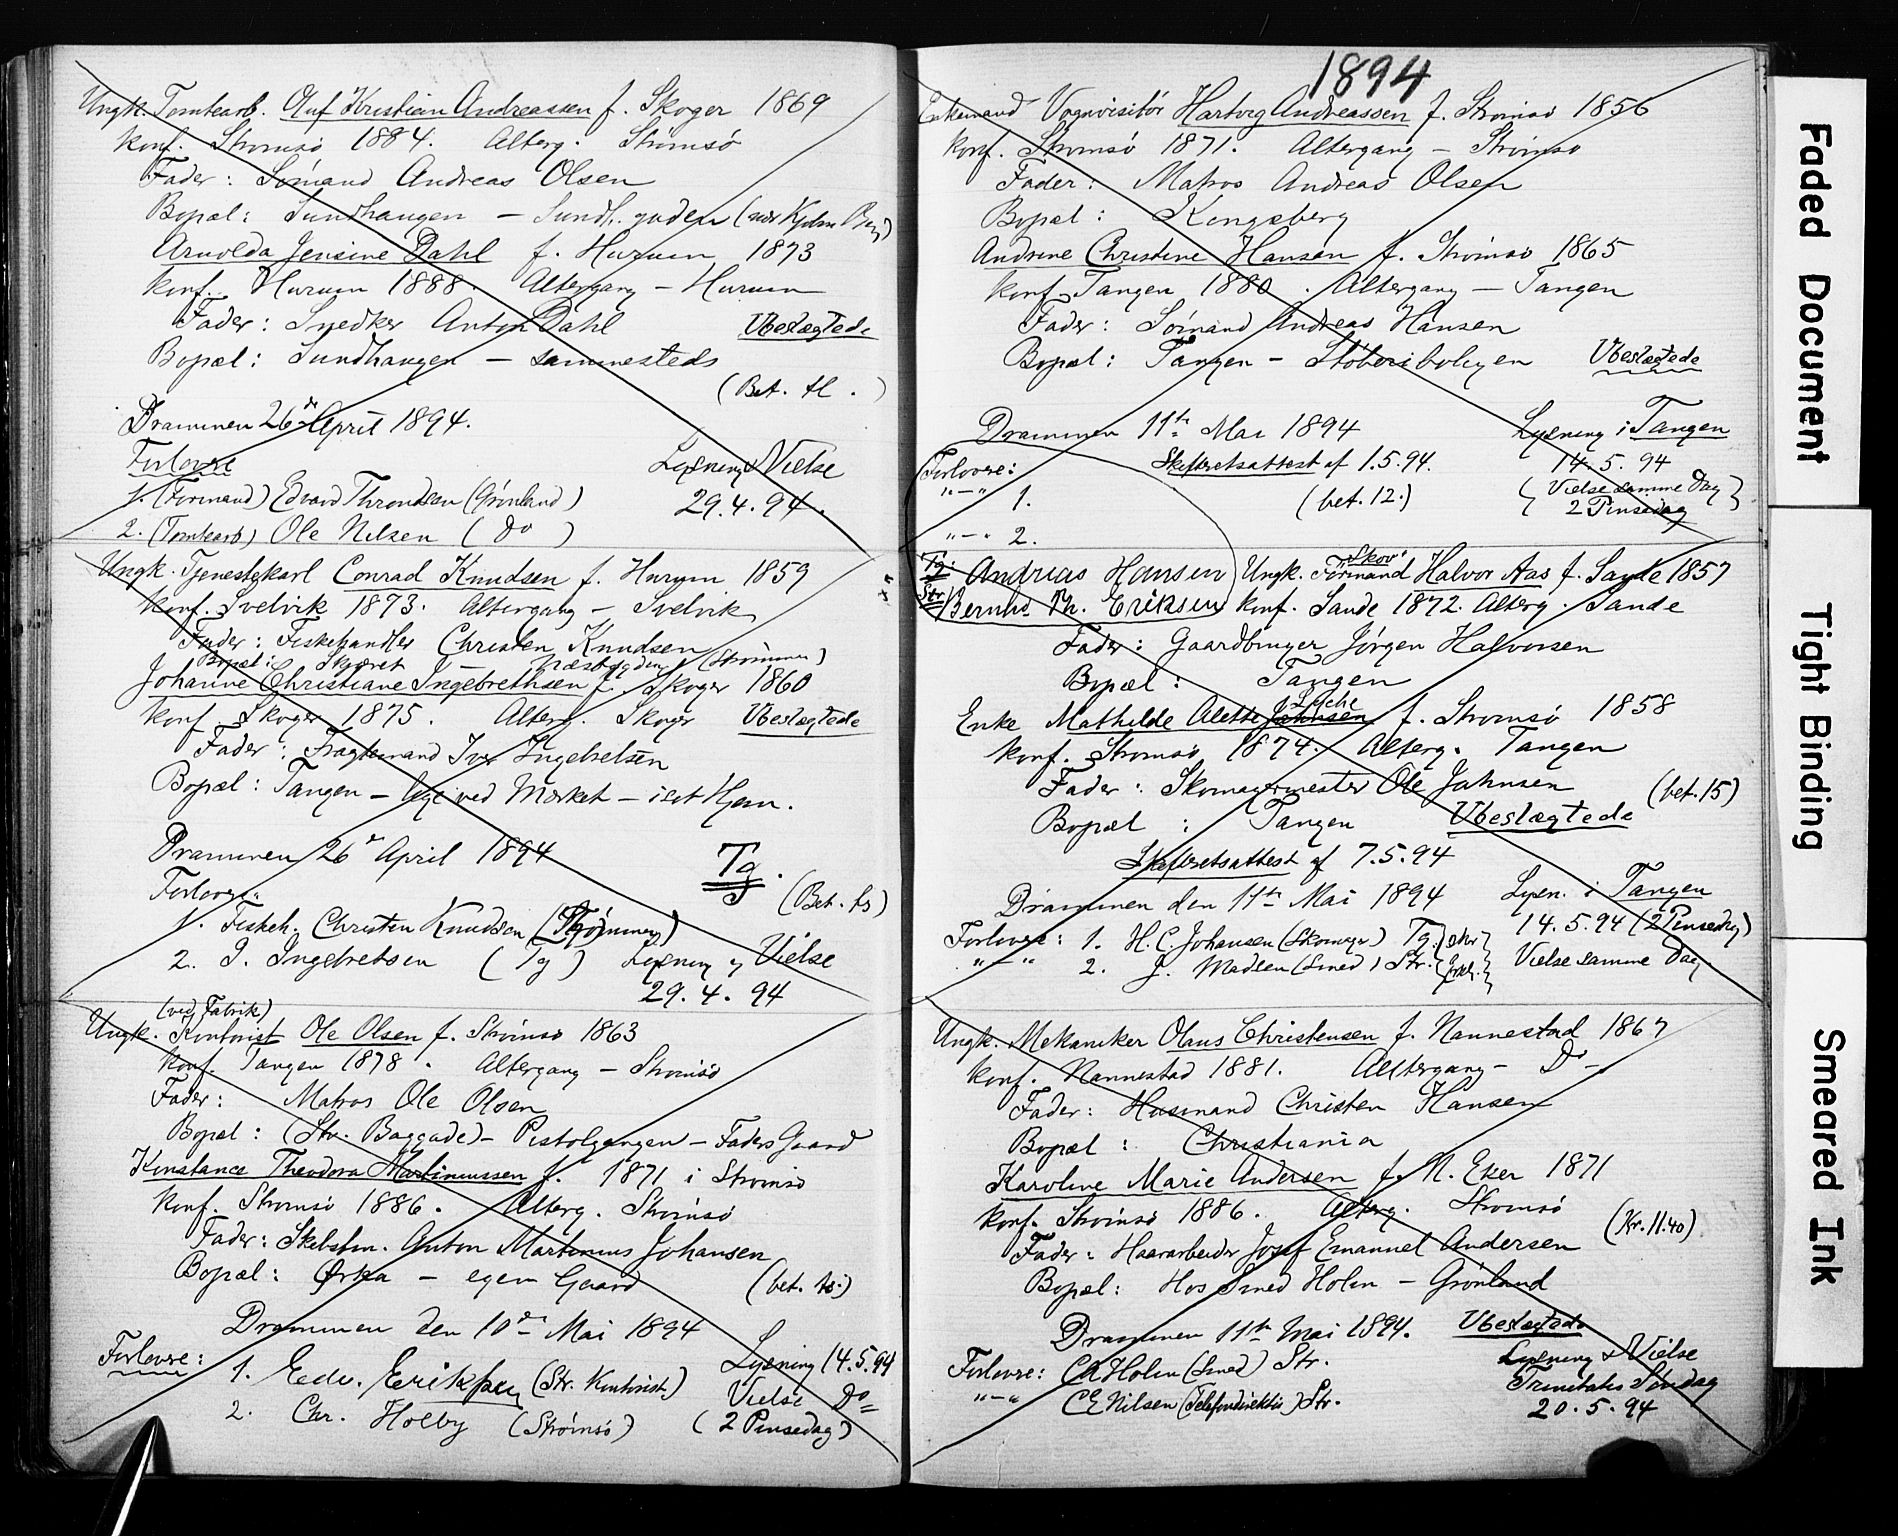 Ungk. Tomtearb. Oluf Kristian Andreassen f. Skoger 1869
konf. Strømsö 1884. Alterg. Strømsö
Fader: Sömand Andreas Olsen
Bopæl: Sundhaugen - Sundh. gaden
Arnolda Jensine Dahl f. Hurum 1873
konf. Hurum 1888. Altergang - Hurum
Fader: Snedker Anton Dahl Ubeslægtede
Bopæl: Sundhaugen - sammesteds
(Bet. )
Drammen 26de April 1894.
Forlovere Lysning & Vielse
1. (Formand) Edvard Throndsen (Grønland) 29.4.94.
2. (Tomtearb) Ole Nilsen (Do)
Ungk. Tjenestekarl Conrad Knudsen f. Hurum 1859
konf. Svelvik 1873. Altergang - Svelvik
Fader: Fiskehandler Christen Knudsen
Bopæl: (Strømmen)
Johanne Christiane Ingebrethsen f. Skoger 1860
konf. Skoger 1875. Alterg. Skoger Ubeslægtede
Fader: Fragtemand Iver Ingebretsen
Bopæl: Tangen - lige ved Mærket - i et Hjem.
Drammen 26 April 1894 Tg.
Forlovere: (Bet. )
1. Fiskeh. Christen Knudsen (Strømmen)
2. I. Ingebretsen (Tg) Lysning og Vielse
29.4.94
(ved Fabrik)
Ungk. Kontorist Ole Olsen f. Strømsö 1863
konf. Tangen 1878. Altergang - Strømsö
Fader: Matros Ole Olsen
Bopæl: (Str. Baggade) - Pistolgangen - Faders Gaard
Konstance Theodora Martinussen f. 1871 i Strømsö
konf. Strømsö 1886. Alterg. Strømsö
Fader: Skibstm. Anton Martinius Johansen
Bopæl: Ørka - egen Gaard (bet. )
Drammen den 10de Mai 1894
Forlovere: Lysning 14.5.94
1. Edv. Eriksen (Str. Kontorist) Vielse Do
2. Chr. Holby (Strømsö) (2 Pinsedag)
1894
Enkemand Vognvisitör Hartvig Andreassen f. Strømsö 1856
konf. Strømsö 1871. Altergang - Strømsö
Fader: Matros Andreas Olsen
Bopæl: Kongsberg
Andrine Christine Hansen f. Strømsö 1865
konf. Tangen 1880. Altergang - Tangen
Fader: Sömand Andreas Hansen
Bopæl: Tangen - Støberiboligen Ubeslægtede
Drammen 11te Mai 1894 Lysning i Tangen
Forlovere: Skifteretsattest af 1.5.94. 14.5.94
"-" 1. (bet. 12.) (Vielse samme Dag
2 Pinsedag)
"-" 2.
Tg: Andrias Hansen
Str. Bernh. Th. Eriksen
Ungk. Skov Formand Halvor Aas f. Sande 1857
konf. Sande 1872. Alterg. Sande
Fader: Gaardbruger Jørgen Halvorsen
Bopæl: Tangen
Enke Mathilde Alette Lyche Jahnsen f. Strømsö 1858
konf. Strømsö 1874. Alterg. Tangen
Fader: Skomagermester Ole Jahnsen (bet. 15)
Bopæl: Tangen Ubeslægtede
Skifteretsattest af 7.5.94
Drammen den 11te Mai 1894 Lysn. i Tangen
14.5.94 (2 Pinsedag)
Forlovere: 1. H. C. Johansen (Skomager) Tg.
"-" 2. J. Madsen (Smed) Str. Vielse samme Dag
Ungk. Mekaniker Olaus Christensen f. Nannestad 1867
konf. Nannestad 1881. Altergang - Do -
Fader: Husmand Christen Hansen
Bopæl: Christiania
Karoline Marie Andersen f. N. Eker 1871
konf. Strømsö 1886. Alterg. Strømsö (Kr. 11.40)
Fader: Haararbeider Josef Emanuel Andersen
Bopæl: Hos Smed Holm - Grønland
Drammen 11te Mai 1894. Ubeslægtede
Forlovere: Ch Holm (Smed) Str. Lysning & Vielse
"-" C E Nilsen (Telefondirektör) Str. Trinitatis Søndag
20.5.94
Faded Document
Tight Binding
Smeared Ink